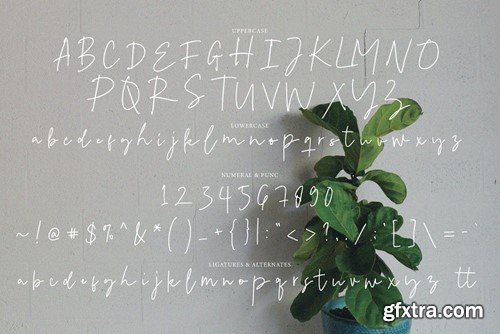 UPPERCASE
ABCDEFGHIJKLMNO
PQRSTUVWXYZ
LOWERCASE
abcdefghijklmnopqrstuvwxyz
NUMERAL & PUNC
1234567890
~!@#$%^&*()_+{}|:"<>?,./;'[]\=-`
LIGATURES & ALTERNATES
abcdefghijklmnopqrstuvwxyz tt
gfxtra.com